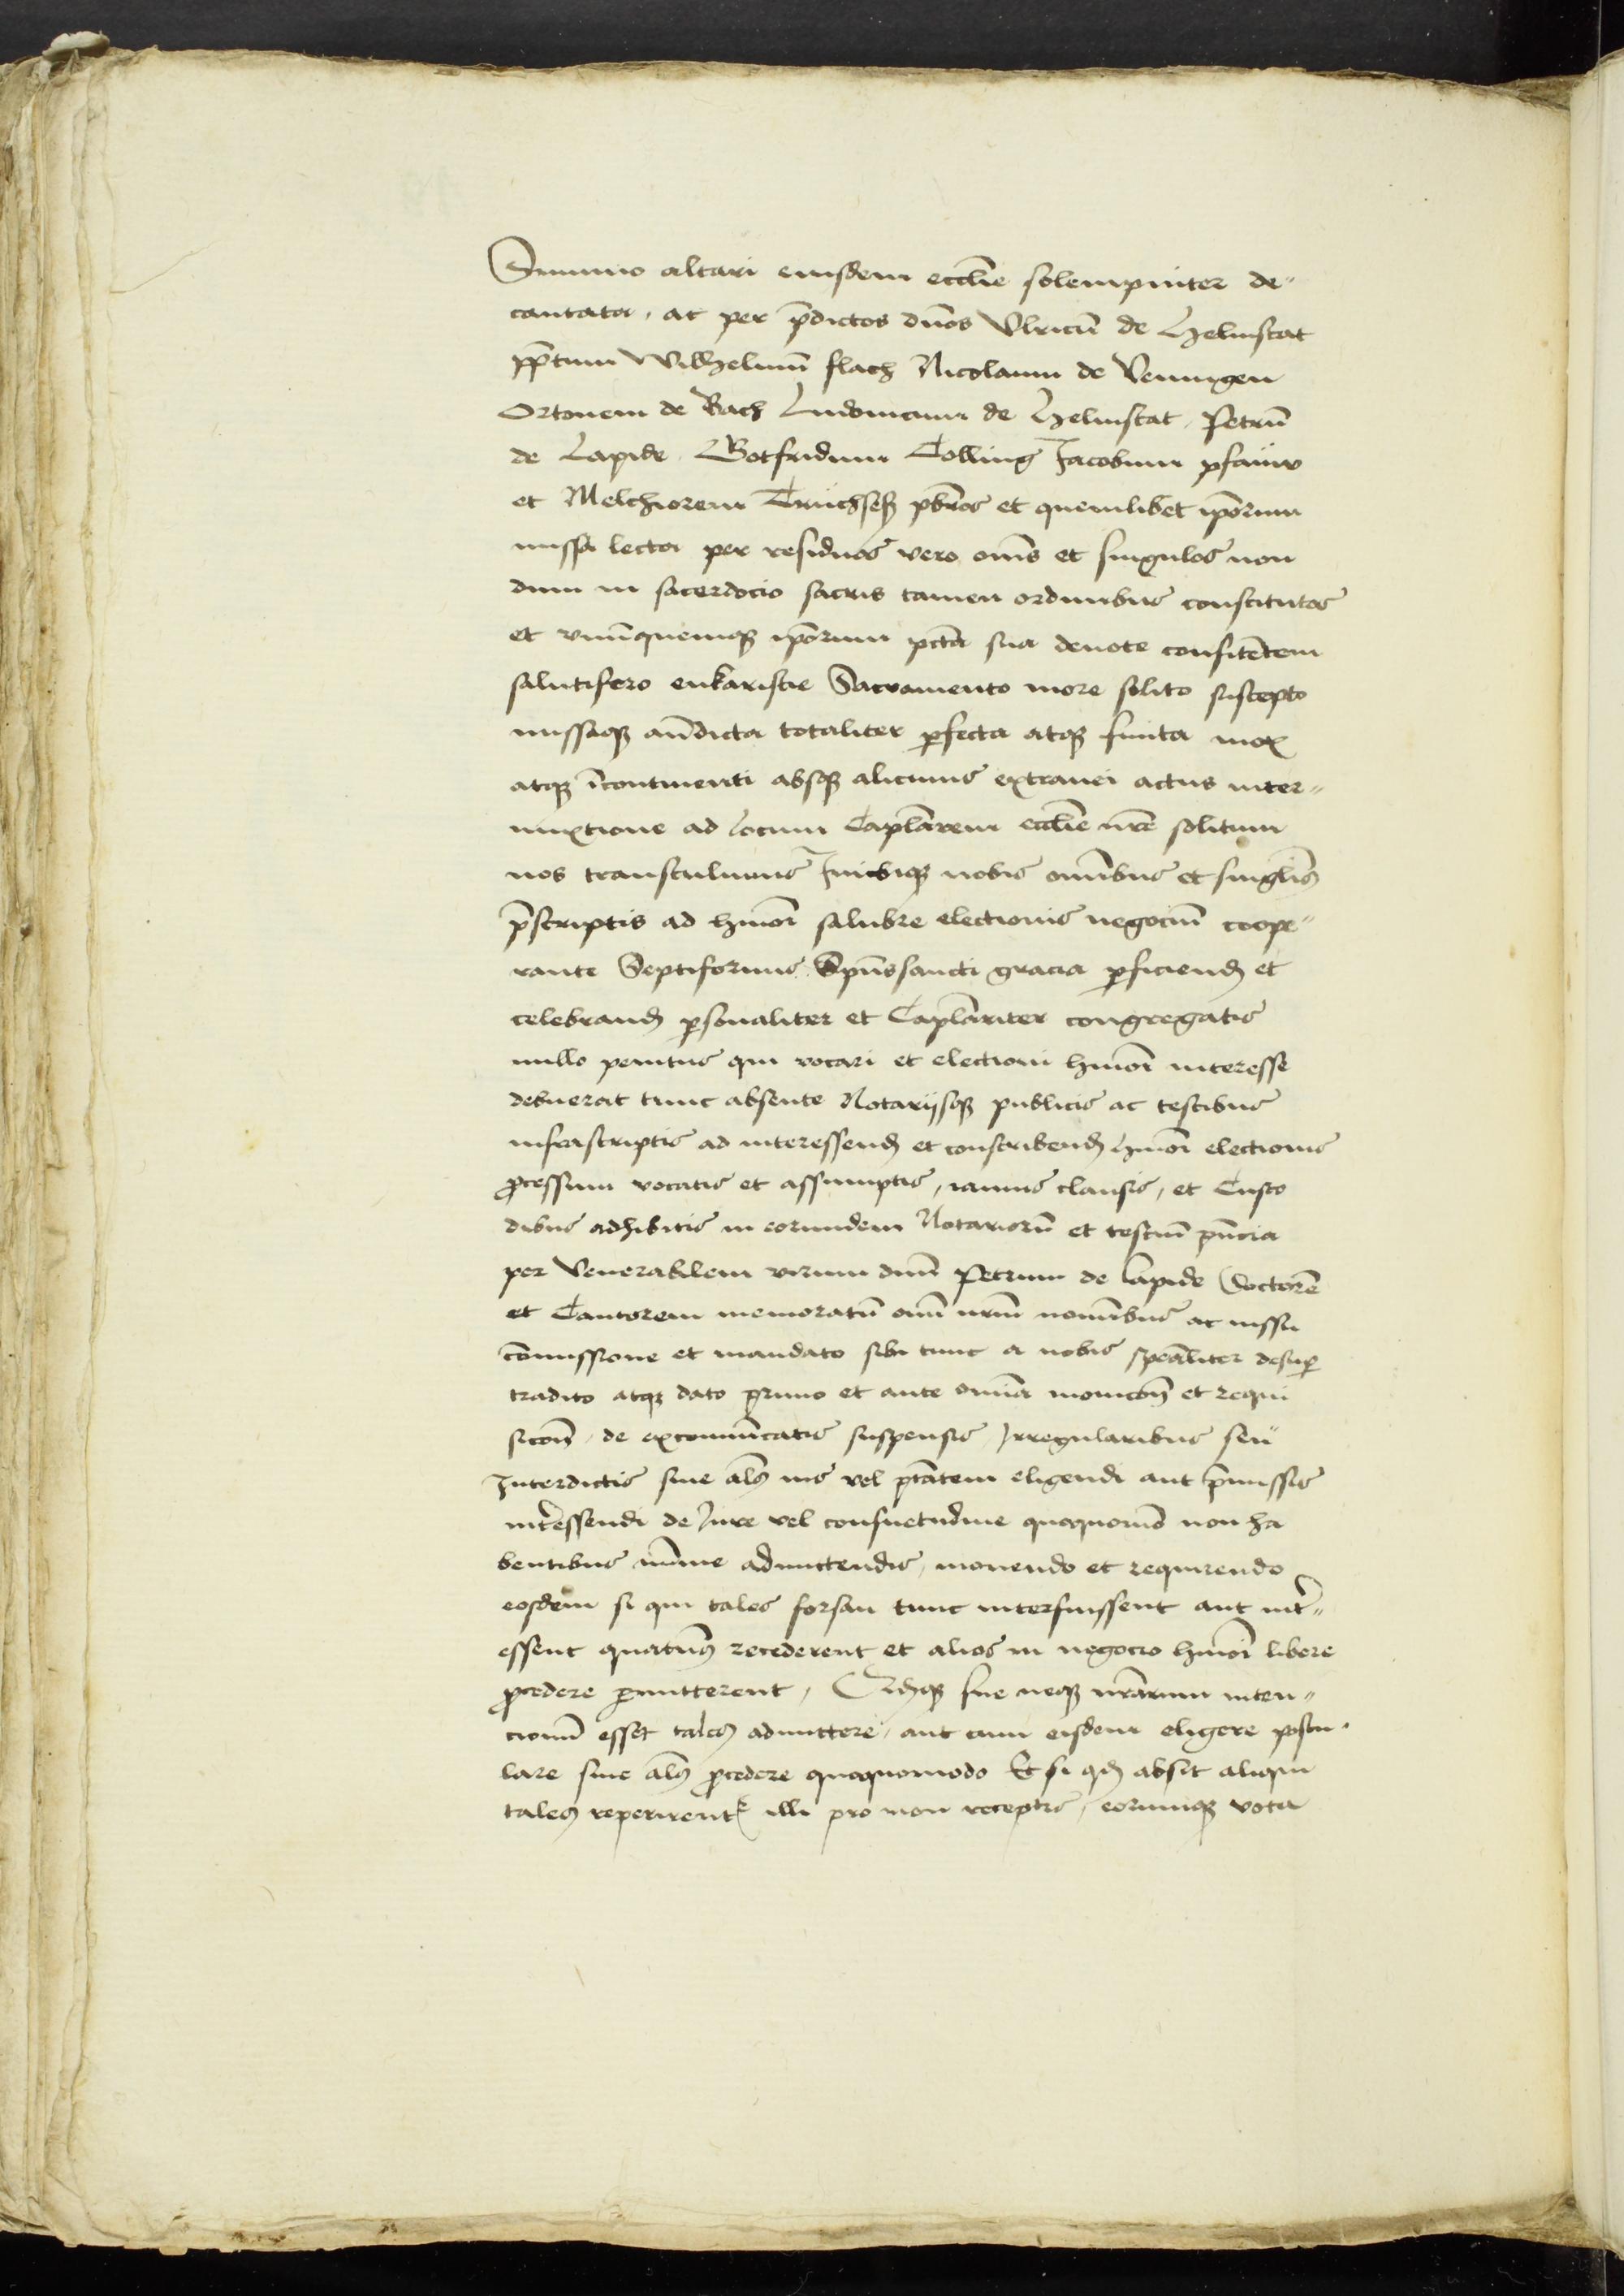 Summo altari eiusdem eccl̄ie solempniter de-
cantata, ac per p̄dictos dn̄os Vlricū de Helmstat
pp̄tum Wilhelmū flach Nicolaum de Venningen
Ortonem de Bach Ludouicum de Helmstat, Petrū
de Lapide Gotfridum Colling Jacobum pfaüw
et Melchiorem Truchseß pbr̄os et quemlibet ip̄orum
missa lecta per residuos vero om̄s et singulos non
dum in sacerdocio sacris tamen ordinibus constitutos
et vnūquemqꝫ ip̄orum pctā sua deuote confitētem
salutifero eukaristie Sacramento more solito suscepto
missaqꝫ an̄dicta totaliter ꝑfecta atqꝫ finita mox
atqꝫ īcontinenti absqꝫ alicuius extranei actus inter-
mixtione ad locum Caplārem eccl̄ie nr̄e solitum
nos transtulimus Inibiqꝫ nobis om̄ibus et singl̄is
p̄scriptis ad hmōi salubre electionis negociū coope-
rante Septiformis Spūssancti gracia ꝑficiend et
celebrand ꝑsonaliter et Caplāriter congregatis
nullo penitus qui vocari et electioni hmōi interesse
debuerat tunc absente Notarijsqꝫ publicis ac testibus
infrascriptis ad interessend et conscribend hmōi electionis
ꝓcessum vocatis et assumptis, ianuis clausis, et Custo
dibus adhibitis in eorundem Notariorū et testiū pn̄cia
per Venerabilem virum dnm̄ Petrum de Lapide Doctorē
et Cantorem memoratū om̄i nr̄m̄ nomībus ac iussu
cōmissione et mandato sibi tunc a nobis speāliter desuꝑ
tradito atqꝫ dato primo et ante om̄ia monicōn et requi
sicōn, de excomūicatis suspensis, Irregularibus seu
Interdictis siue al̄s ius vel ptātem eligendi aut p̄missis
int̄essendi de Iure vel consuetudine quoquomō non ha
bentibus mīme admittendis, monendo et requirendo
eosdem si qui tales forsan tunc interfuissent aut int̄-
essent quaten̄ recederent et alios in negocio hmōi libere
ꝓcedere ꝑmitterent, siue neqꝫ nr̄arum inten-
cionū esset tales admittere, aut cum eisdem eligere postu-
lare siue al̄s ꝓcedere quoquomodo Et si qd absit aliqui
tales reperirent illi pro non receptis, eorumqꝫ vota